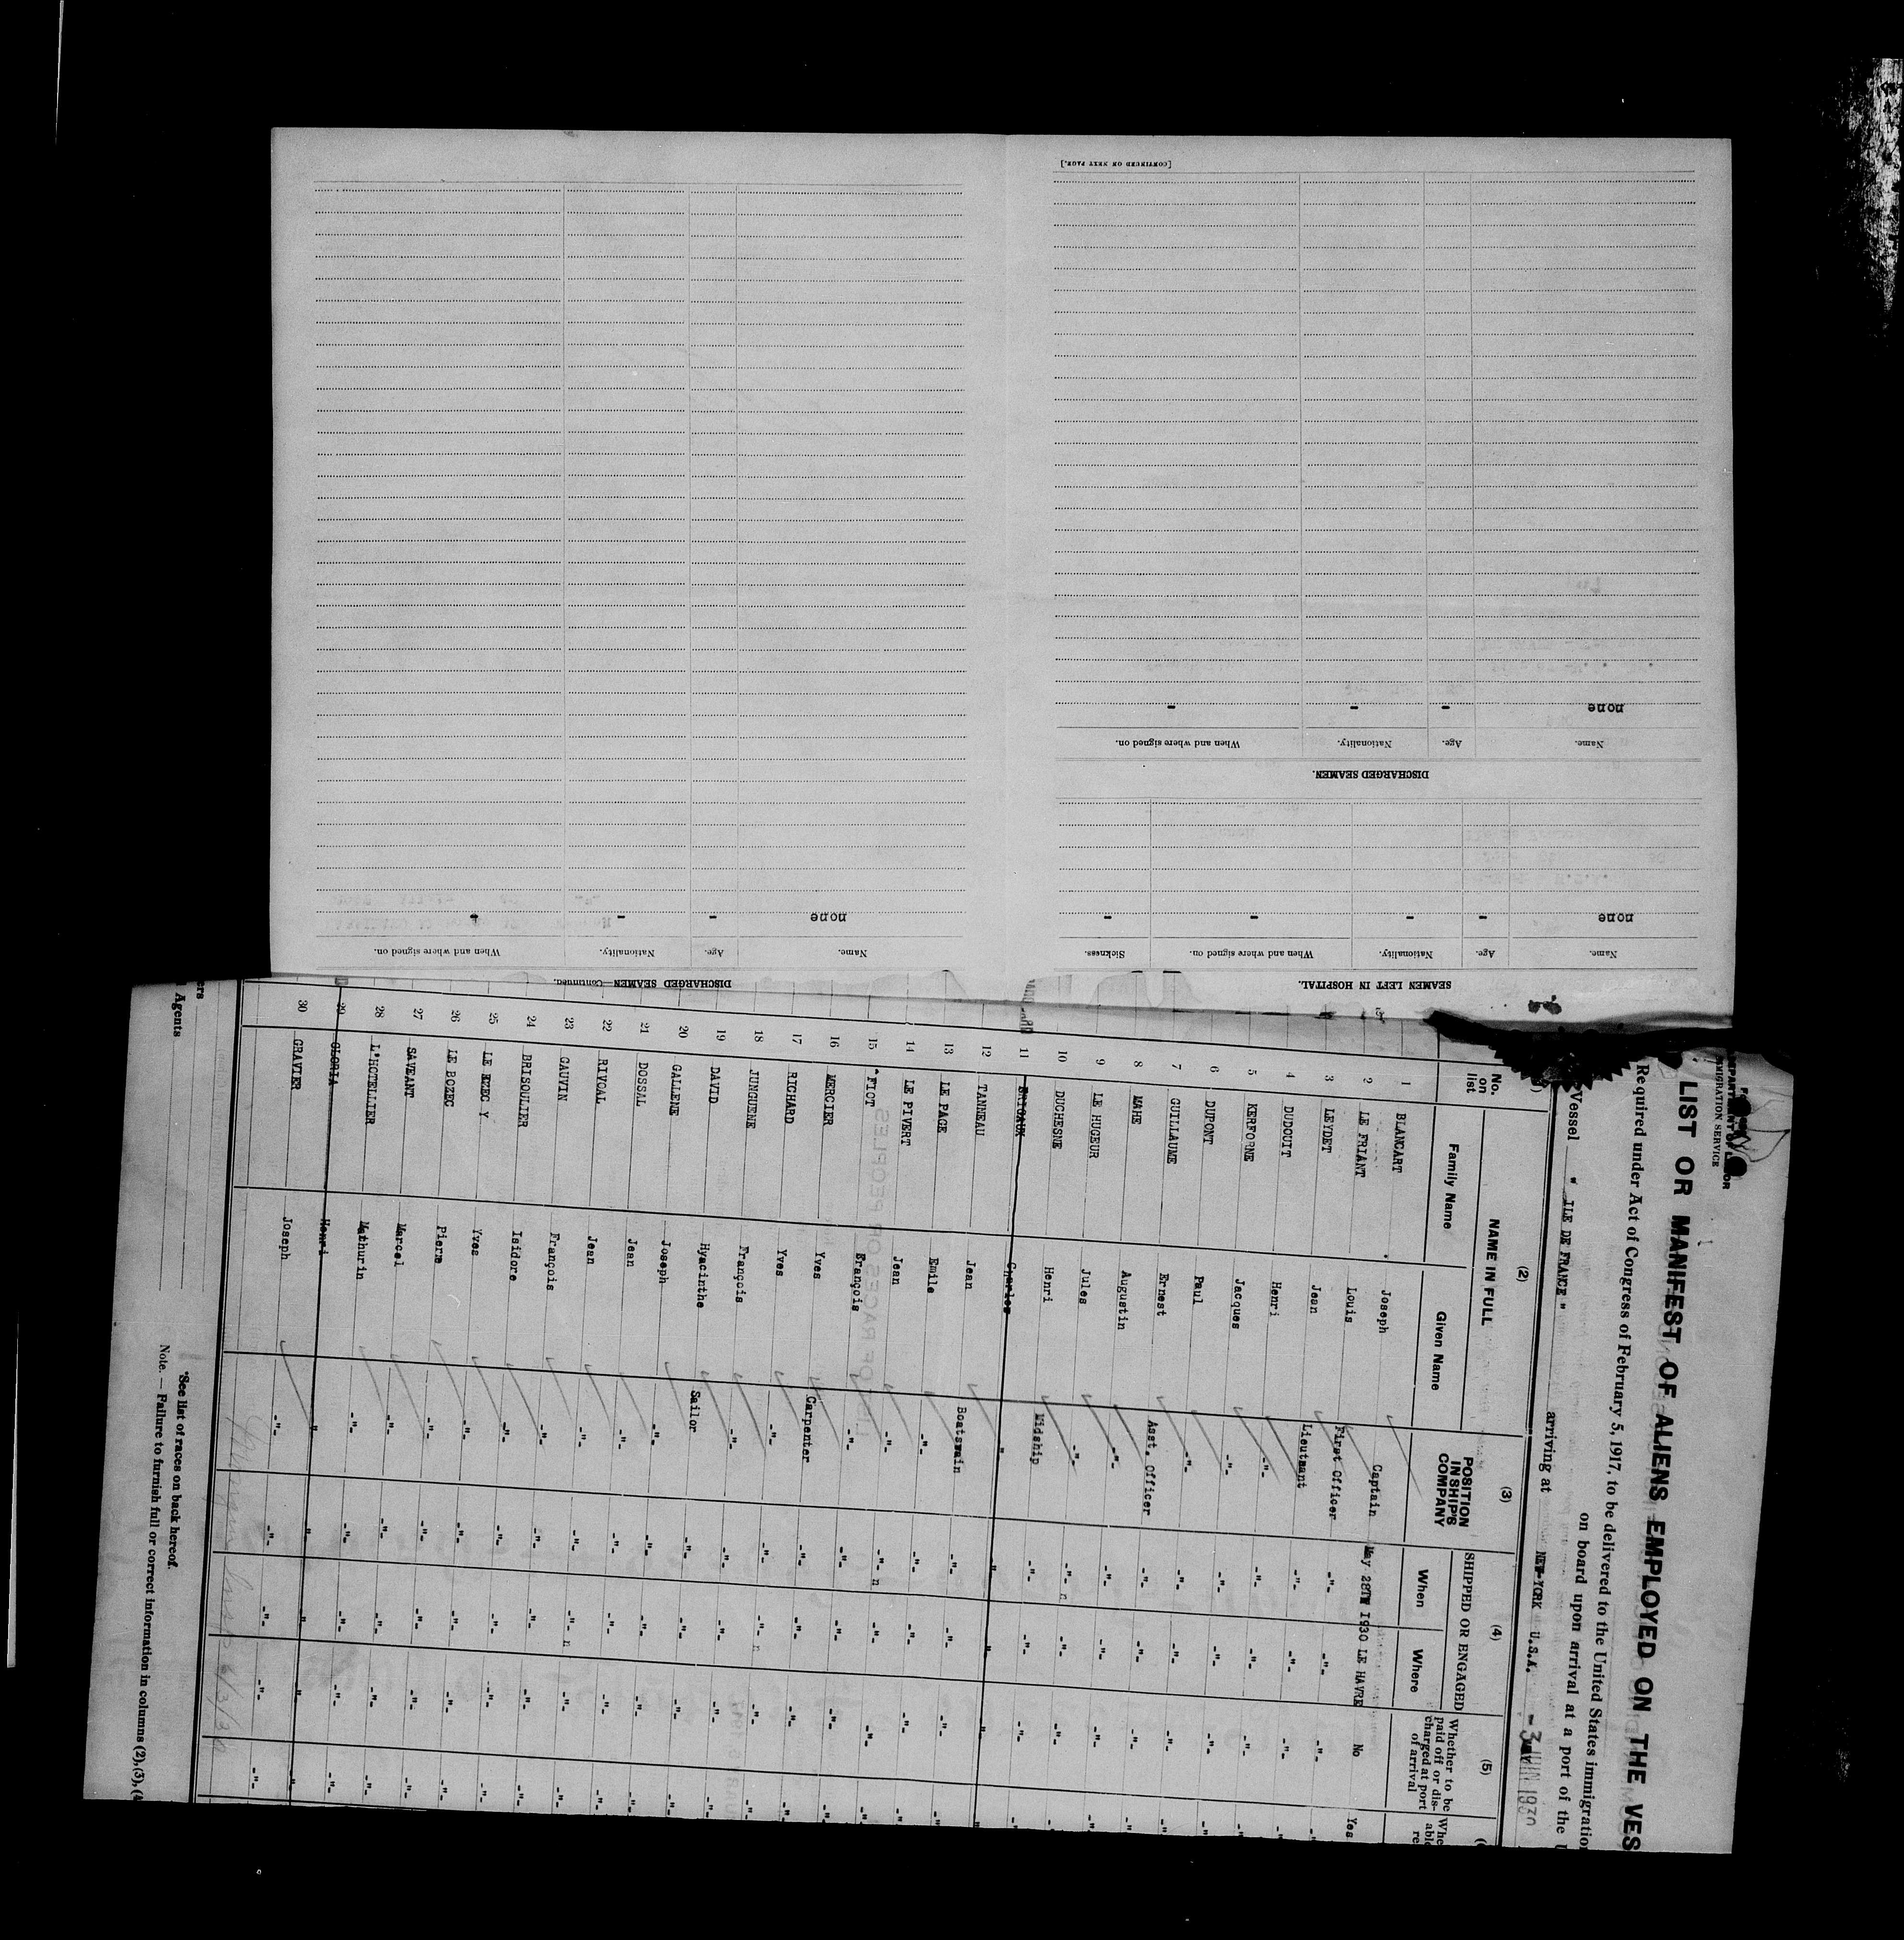 SEAMEN LEFT IN HOSPITAL.
Name. Age. Nationality. When and where signed on. Sickness.
none - - - -
DISCHARGED SEAMEN.
Name. Age. Nationality. When and where signed on.
none - - -
[CONTINUED ON NEXT PAGE.]
DISCHARGED SEAMEN—Continued.
Name. Age. Nationality. When and where signed on.
none - - -
IMMIGRATION SERVICE
LIST OR MANIFEST OF ALIENS EMPLOYED ON THE VES
Required under Act of Congress of February 5, 1917, to be delivered to the United States immigration
on board upon arrival at a port of the
Vessel " ILE DE FRANCE " arriving at NEW-YORK U.S.A. -3 JUIN 1930
(2) (3) (4) (5)
No. on list
NAME IN FULL
Family Name Given Name
POSITION IN SHIP'S COMPANY
SHIPPED OR ENGAGED
When Where
Whether to be paid off or discharged at port of arrival
1 BLANCART Joseph Captain May 28TH 1930 LE HAVRE No Yes
2 LE FRIANT Louis First Officer -"- -"- -"- -"-
3 LEYDET Jean Lieutenant -"- -"- -"- -"-
4 DUDOUIT Henri -"- -"- -"- -"- -"-
5 KERFORNE Jacques -"- -"- -"- -"- -"-
6 DUPONT Paul -"- -"- -"- -"- -"-
7 GUILLAUME Ernest Asst. Officer -"- -"- -"- -"-
8 MAHE Augustin -"- -"- -"- -"- -"-
9 LE HUGEUR Jules -"- -"- -"- -"- -"-
10 DUCHESNE Henri Midship -"- -"- -"- -"-
11 BRICAUX Charles " " " " "
12 TANNEAU Jean Boatswain -"- -"- -"- -"-
13 LE PAGE Emile -"- -"- -"- -"- -"-
14 LE PIVERT Jean -"- -"- -"- -"- -"-
15 FIOT François -"- -"- -"- -"- -"-
16 MERCIER Yves Carpenter -"- -"- -"- -"-
17 RICHARD Yves -"- -"- -"- -"- -"-
18 JUNGUENE François -"- -"- -"- -"- -"-
19 DAVID Hyacinthe Sailor -"- -"- -"- -"-
20 GALLENE Joseph -"- -"- -"- -"- -"-
21 DOSSAL Jean -"- -"- -"- -"- -"-
22 RIVOAL Jean -"- -"- -"- -"- -"-
23 GAUVIN François -"- -"- -"- -"- -"-
24 BRISOULIER Isidore -"- -"- -"- -"- -"-
25 LE EZEC Y Yves -"- -"- -"- -"- -"-
26 LE BOZEC Pierre -"- -"- -"- -"- -"-
27 SAVEANT Marcel -"- -"- -"- -"- -"-
28 L'HOTELLIER Mathurin -"- -"- -"- -"- -"-
29 GLORIA Henri " " " " "
30 GRAVIER Joseph -"- -"- -"- -"- -"-
6/3/30
ers
Agents
*See list of races on back hereof.
Note. — Failure to furnish full or correct information in columns (2), (3), (4